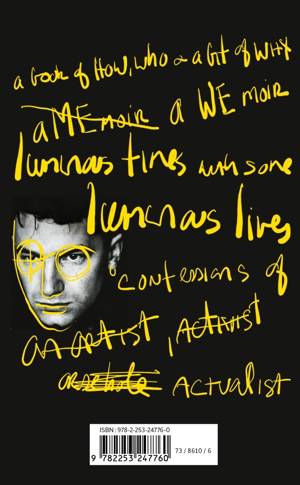 a book of How, who & a bit of WHY
a MEmoir a WE moir
luminous times with some
luminous lives
confessions of
an artist, ACTIVIST
ACTUALIST
ISBN : 978-2-253-24776-0
9 782253 247760
73 / 8610 / 6